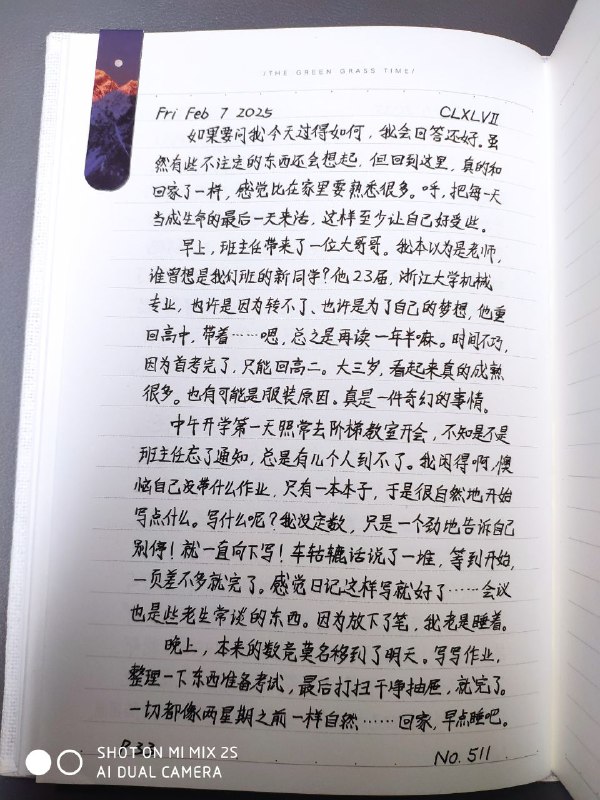 /THE GREEN GRASS TIME/
Fri Feb 7 2025 CLXLVII
如果要问我今天过得如何，我会回答还好。虽
然有些不注定的东西还会想起，但回到这里，真的和
回家了一样，感觉比在家里要熟悉很多。呼，把每一天
当成生命的最后一天来活，这样至少让自己好受些。
早上，班主任带来了一位大哥哥。我本以为是老师，
谁曾想是我们班的新同学？他23届，浙江大学机械
专业，也许是因为转不了、也许是为了自己的梦想，他重
回高中，带着……嗯，总之是再读一年半嘛。时间不巧，
因为首考完了，只能回高二。大三岁，看起来真的成熟
很多。也有可能是服装原因。真是一件奇幻的事情。
中午开学第一天照常去阶梯教室开会，不知是不是
班主任忘了通知，总是有几个人到不了。我困得啊，懊
恼自己没带什么作业，只有一本本子，于是很自然地开始
写点什么。写什么呢？我没定数，只是一个劲地告诉自己
别停！就一直向下写！车轱辘话说了一堆，等到开始，
一页差不多就完了。感觉日记这样写就好了……会议
也是些老生常谈的东西。因为放下了笔，我老是睡着。
晚上，本来的数竞莫名移到了明天。写写作业，
整理一下东西准备考试，最后打扫干净抽屉，就完了。
一切都像两星期之前一样自然……回家，早点睡吧。
P.33 No. 511
SHOT ON MI MIX 2S
AI DUAL CAMERA